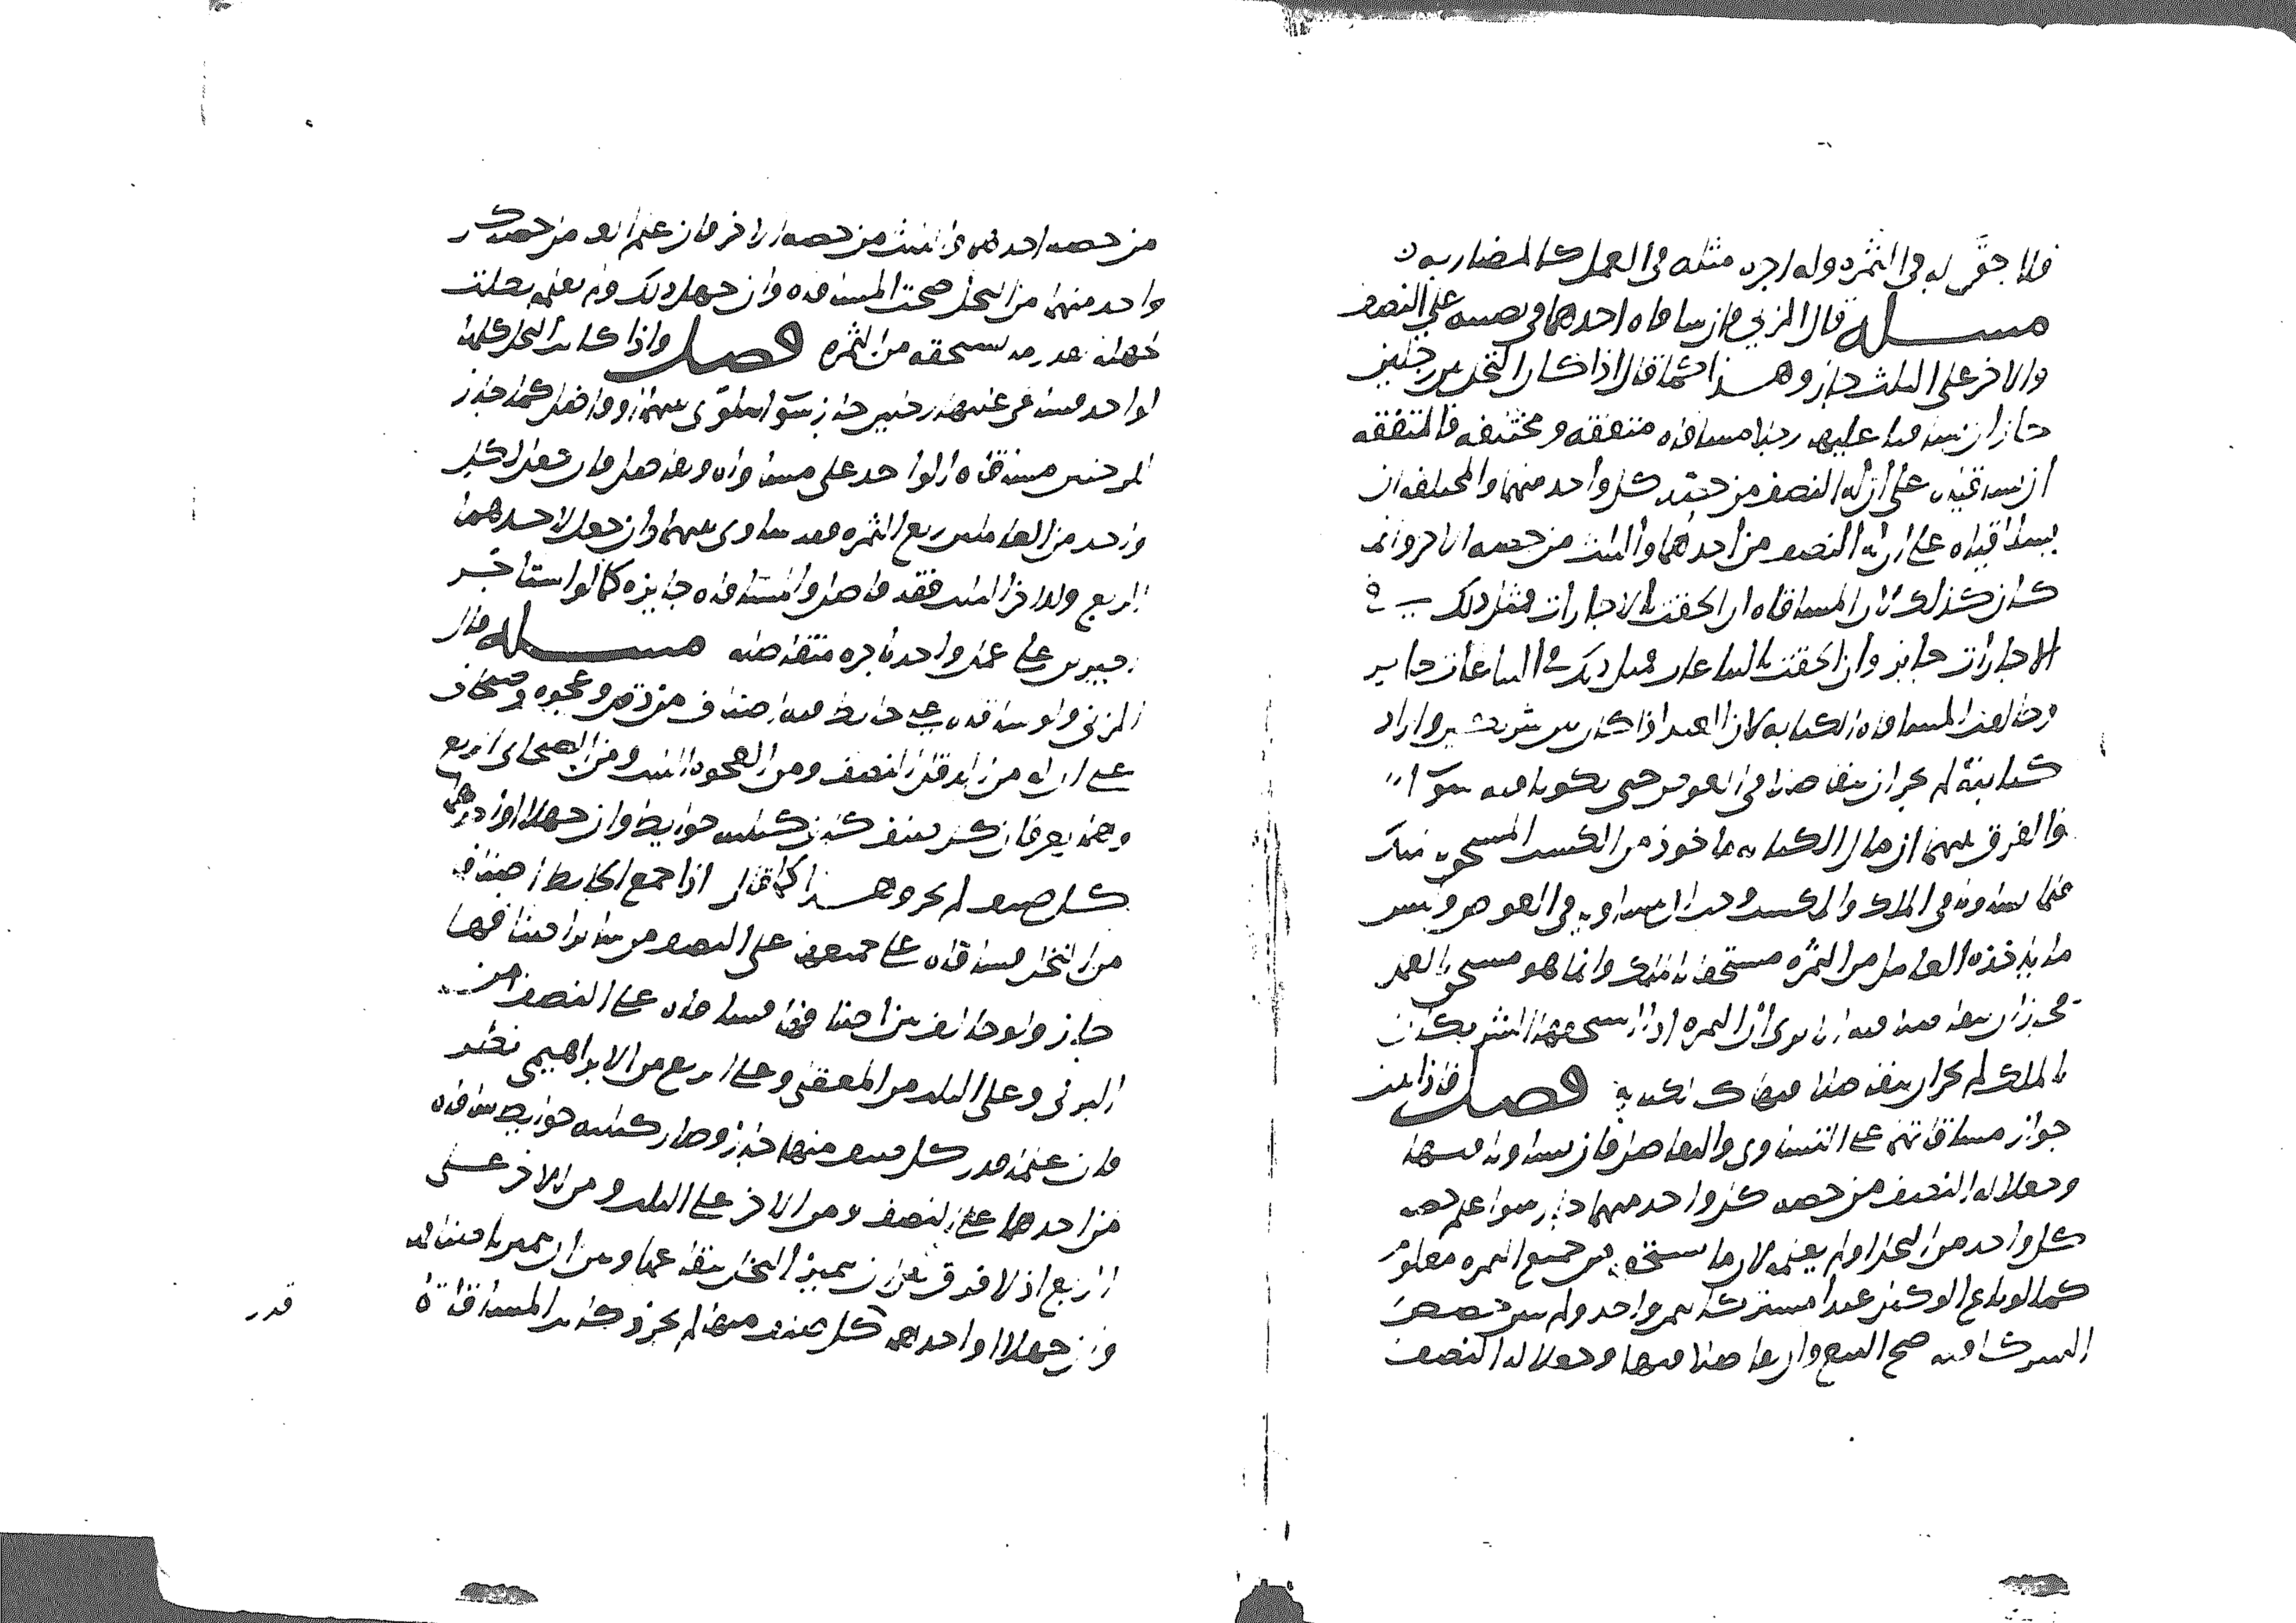 فلا حق له في الثمرة وله اجرة مثله في العمل كالمضاربة
مسله قال المزني فان ساقاه احدهما في نصيبه على النصف
والاخر على الثلث جاز وهذا كما قال اذا كان النخل بين رجلين
جاز ان يساقيا عليها رجلا مساقاه متفقه ومختلفه فالمتفقه
ان يساقياه على ان له النصف من حصه كل واحد منهما والمختلفه ان
يساقياه على ان له النصف من احدهما والثلث من حصه الاخر وانما
كان كذلك لان المساقاه ان الحقت بالاجارات فمثل ذلك في
الاجارات جايز وان الحقت بالبياعات فمثل ذلك في البياعات جايز
وخالف المساقاه الكتابه لان العبد اذا كان بين شريكين وارادا
كتابته لم يجز ان يتفاضلا في العوض حتى يكونا فيه سوا
والفرق بينهما ان مال الكتابه ماخوذ من الكسب المستحق بالملك
فلما تساويا في الملك والكسب وجب ان يتساويا في العوض وليس
ما ياخذه العامل من الثمره مستحقا بالملك وانما هو مستحق بالعمل
فجاز ان يتفاضلا فيه الا ترى ان الثمره اذا استحقها الشريكان
بالملك لم يجز ان يتفاضلا فيها كالكتابة فصل فاذا ثبت
جواز مساقاتهما على التساوي والتفاضل فان تساويا فيها
وجعلا له النصف من حصه كل واحد منهما جاز سوا علم حصه
كل واحد من النخل او لم يعلمه لان ما يستحقه من جميع الثمره معلوم
كما لو باع الوكيل عبدا مشتركا بثمن واحد ولم يبين حصص
الشركا فيه صح البيع وان تفاضلا فيها وجعلا له النصف
من حصه احدهما والثلث من حصه الاخر فان علم العامل حصه كل
واحد منهما من النخل صحت المساقاه وان جهل ذلك ولم يعلمه بطلت
لجهله بقدر ما يستحقه من الثمره فصل واذا كانت النخل كلها
لواحد فساقى عليها رجلين جاز سوا ساوى بينهما او فاضل كما جاز
للرجلين مساقاه الواحد على مساواه وتفاضل فان جعل لكل
واحد من العاملين ربع الثمره فقد ساوى بينهما وان جعل لاحدهما
الربع وللاخر الثلث فقد فاضل والمساقاه جايزه كما لو استاجر
اجيرين على عمل واحد باجره متفاضله مسله قال
المزني ولو ساقاه على حايط فيه اصناف من دقل وعجوه وصيحاني
على ان له من الدقل النصف ومن العجوه الثلث ومن الصيحاني الربع
وهما يعرفان كل صنف كان كثلثه حوايط وان جهلا او احدهما
كل صنف لم يجز وهذا كما قال اذا جمع الحايط اصنافا
من النخل فساقاه على جميعها على النصف من ساير اصنافها
جاز ولو خالف بين اصنافها فساقاه على النصف من
البرني وعلى الثلث من المعقلي وعلى الربع من الابراهيمي نظر
فان علما قدر كل صنف منها جاز وصار كثلثه حوايط ساقاه
من احدها على النصف ومن الاخر على الثلث ومن الاخر على
الربع اذ لا فرق بين ان يتميز النخل بقاعها وبين ان يتميز باصنافه
وان جهلا او احدهما كل صنف منها لم يجز وكانت المساقاة
قدر